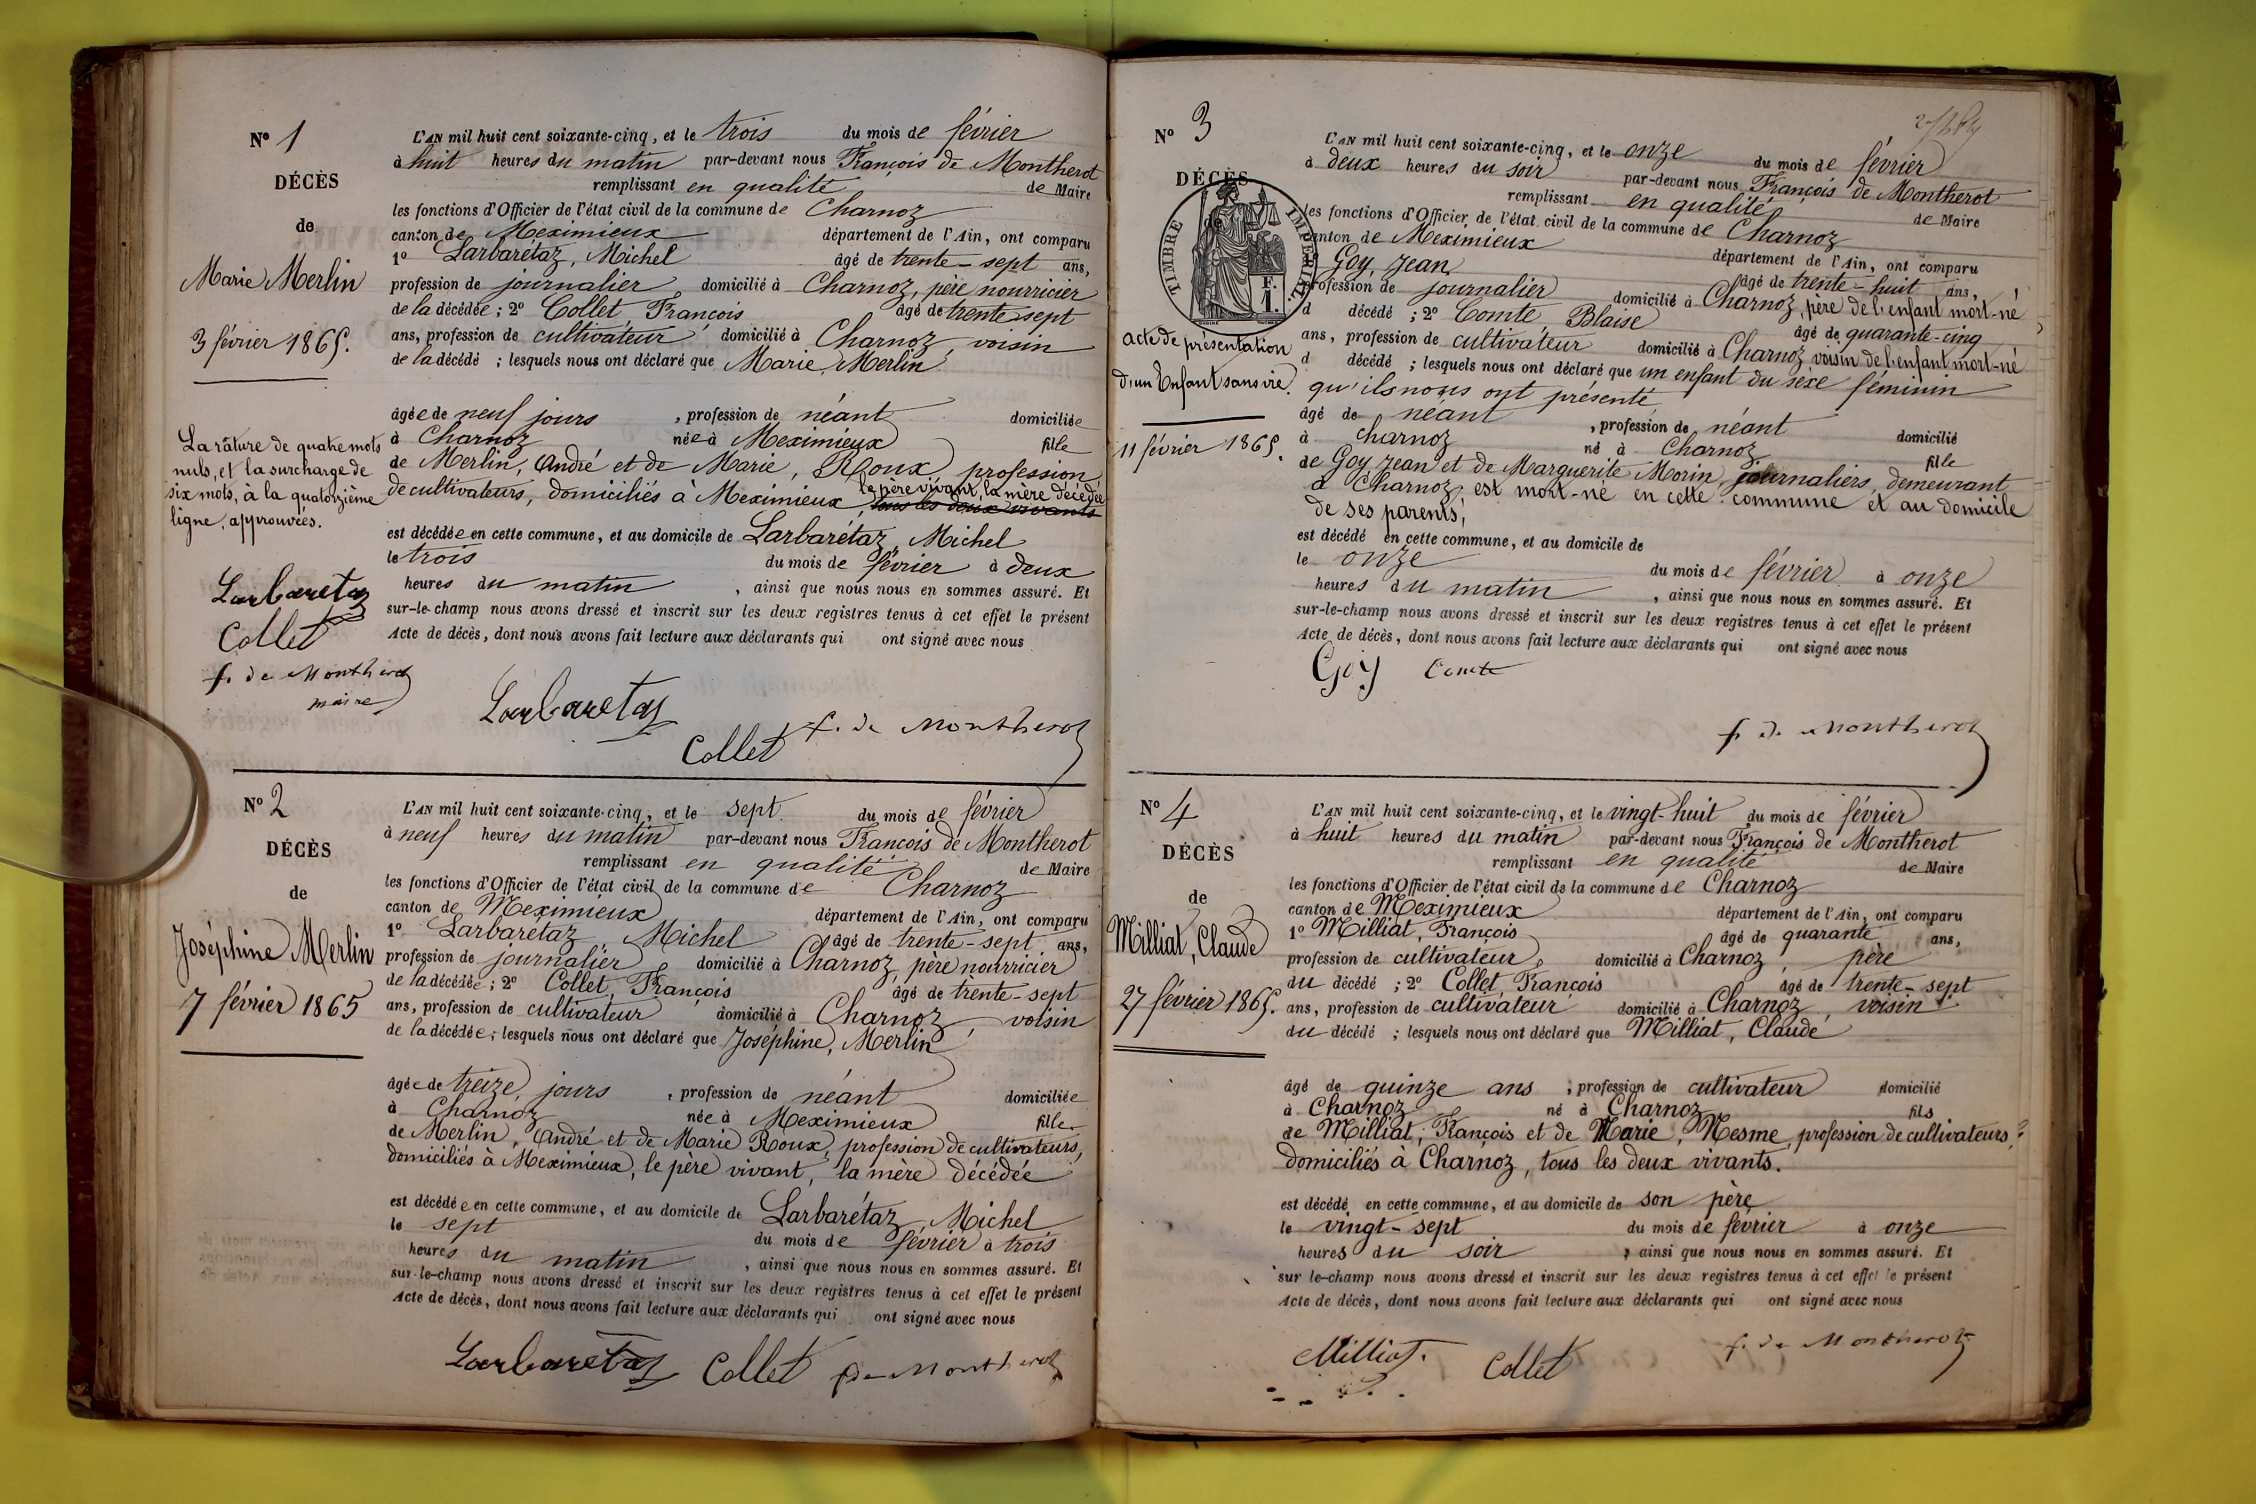 N° 1
DÉCÈS
de
Marie Merlin
3 février 1865.
La râture de quatre mots
nuls, et la surcharge de
six mots, à la quatorzième
ligne, approuvées.
Larbaretaz
Collet
f. de Montherot
maire
L'AN mil huit cent soixante-cinq, et le trois du mois de février
à huit heures du matin par-devant nous François de Montherot
remplissant en qualité de Maire
les fonctions d'Officier de l'état civil de la commune de Charnoz
canton de Meximieux département de l'Ain, ont comparu
1° Larbarétaz, Michel âgé de trente-sept ans,
profession de journalier domicilié à Charnoz, père nourricier
de la décédée ; 2° Collet, François âgé de trente sept
ans, profession de cultivateur domicilié à Charnoz, voisin
de la décédé ; lesquels nous ont déclaré que Marie, Merlin
âgée de neuf jours, profession de néant domiciliée
à Charnoz née à Meximieux fille
de Merlin, André et de Marie, Roux, profession
le père vivant, la mère décédée
de cultivateurs, domiciliés à Meximieux, tous les deux vivants
est décédée en cette commune, et au domicile de Larbarétaz, Michel
le trois du mois de février à deux
heures du matin, ainsi que nous nous en sommes assuré. Et
sur-le-champ nous avons dressé et inscrit sur les deux registres tenus à cet effet le présent
Acte de décès, dont nous avons fait lecture aux déclarants qui ont signé avec nous
Larbaretaz
Collet f. de Montherot
N° 2
DÉCÈS
de
Joséphine Merlin
7 février 1865
L'AN mil huit cent soixante-cinq, et le sept du mois de février
à neuf heures du matin par-devant nous François de Montherot
remplissant en qualité de Maire
les fonctions d'Officier de l'état civil de la commune de Charnoz
canton de Meximieux département de l'Ain, ont comparu
1° Larbarétaz Michel âgé de trente-sept ans,
profession de journalier domicilié à Charnoz, père nourricier
de la décédée ; 2° Collet, François âgé de trente-sept
ans, profession de cultivateur domicilié à Charnoz, voisin
de la décédée ; lesquels nous ont déclaré que Joséphine, Merlin
âgée de treize jours, profession de néant domiciliée
à Charnoz née à Meximieux fille
de Merlin, André et de Marie Roux, profession de cultivateurs,
domiciliés à Meximieux, le père vivant, la mère décédée
est décédée en cette commune, et au domicile de Larbarétaz, Michel
le sept du mois de février à trois
heures du matin, ainsi que nous nous en sommes assuré. Et
sur-le-champ nous avons dressé et inscrit sur les deux registres tenus à cet effet le présent
Acte de décès, dont nous avons fait lecture aux déclarants qui ont signé avec nous
Larbaretaz Collet f. de Montherot
N° 3
DÉCÈS
de
TIMBRE IMPÉRIAL
F.
1.
acte de présentation
d'un Enfant sans vie.
11 février 1865.
L'AN mil huit cent soixante-cinq, et le onze du mois de février
à deux heures du soir par-devant nous François de Montherot
remplissant en qualité de Maire
les fonctions d'Officier de l'état civil de la commune de Charnoz
canton de Meximieux département de l'Ain, ont comparu
Goy, Jean âgé de trente-huit ans,
profession de journalier domicilié à Charnoz, père de l'enfant mort-né
d décédé ; 2° Comte Blaise âgé de quarante-cinq
ans, profession de cultivateur domicilié à Charnoz voisin de l'enfant mort-né
d décédé ; lesquels nous ont déclaré que un enfant du sexe féminin
qu'ils nous ont présenté
âgé de néant, profession de néant domicilié
à Charnoz né à Charnoz fille
de Goy Jean et de Marguerite Morin, journaliers, demeurant
à Charnoz, est mort-né en cette commune et au domicile
de ses parents,
est décédé en cette commune, et au domicile de
le onze du mois de février à onze
heures du matin, ainsi que nous nous en sommes assuré. Et
sur-le-champ nous avons dressé et inscrit sur les deux registres tenus à cet effet le présent
Acte de décès, dont nous avons fait lecture aux déclarants qui ont signé avec nous
Goy Comte
f. de Montherot
N° 4
DÉCÈS
de
Milliat, Claude
27 février 1865.
L'AN mil huit cent soixante-cinq, et le vingt-huit du mois de février
à huit heures du matin par-devant nous François de Montherot
remplissant en qualité de Maire
les fonctions d'Officier de l'état civil de la commune de Charnoz
canton de Meximieux département de l'Ain, ont comparu
1° Milliat, François âgé de quarante ans,
profession de cultivateur, domicilié à Charnoz, père
du décédé ; 2° Collet, François âgé de trente-sept
ans, profession de cultivateur domicilié à Charnoz, voisin
du décédé ; lesquels nous ont déclaré que Milliat, Claude
âgé de quinze ans, profession de cultivateur domicilié
à Charnoz né à Charnoz fils
de Milliat, François et de Marie, Mesme, profession de cultivateurs,
domiciliés à Charnoz, tous les deux vivants.
est décédé en cette commune, et au domicile de son père
le vingt-sept du mois de février à onze
heures du soir, ainsi que nous nous en sommes assuré. Et
sur le-champ nous avons dressé et inscrit sur les deux registres tenus à cet effet le présent
Acte de décès, dont nous avons fait lecture aux déclarants qui ont signé avec nous
Milliat. Collet f. de Montherot